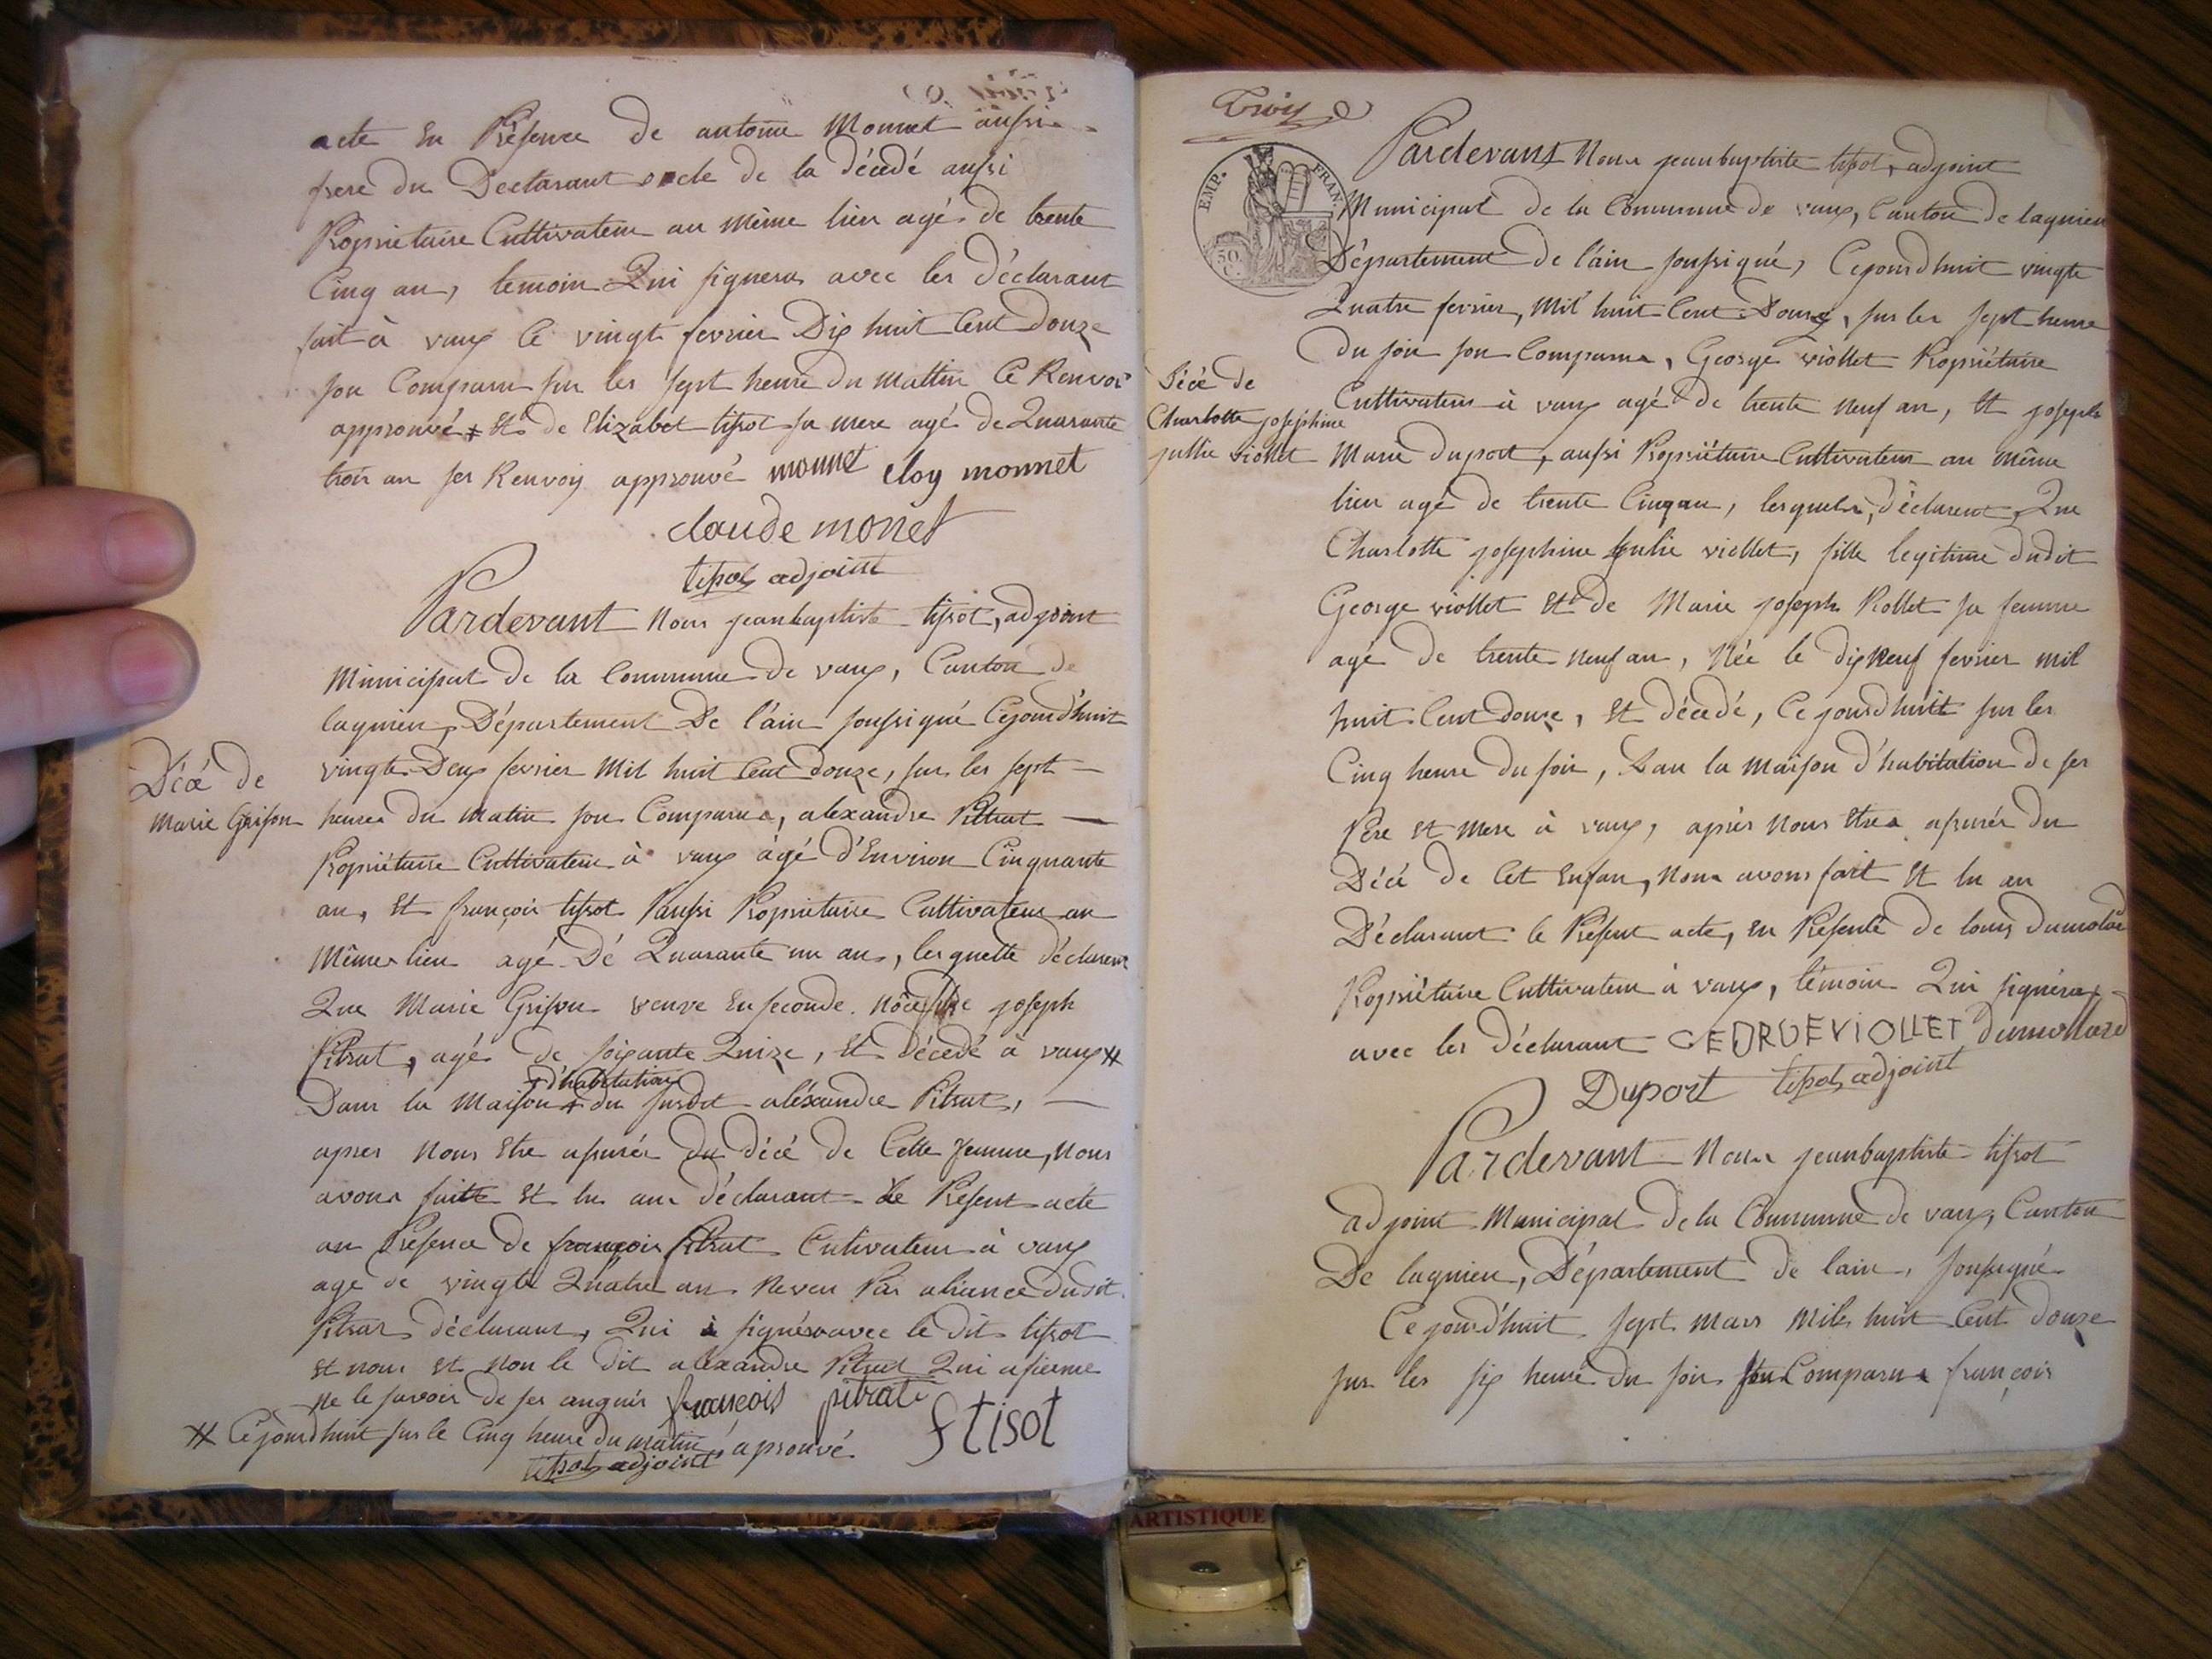 acte En Présence de antoine Monnet aussi
frere du Declarant oncle de la décédé aussi
Propriétaire Cultivateur au même lieu agé de trente
Cinq an, temoin Qui signeron avec les déclarant
fait à vaux le vingt fevrier Dix huit Cent Douze
son Comparu sur les sept heure du Mattin Ce Renvoi
approuvé ‡ Et de Elizabet tisot sa mere agé de Quarante
trois an ses Renvoy approuvé monnet eloy monnet
claude monet
tisot adjoint
Pardevant Nous jeanbaptiste tisot, adjoint
Municipal de la Commune de vaux, Canton de
lagnieu, Département De l'ain soussigné Cejourd'huit
vingte Deux fevrier Mil huit Cent douze, sur les sept
Décé de
Marie Grison
heures du Matin son Comparus, alexandre Pitrat
Propriétaire Cultivateur à vaux âgé d'Environ Cinquante
an, Et françois tisot aussi Propriétaire Cultivateur au
Même lieu agé Dé Quarante un ans, lesquelle déclarent
Que Marie Grison veuve En seconde Nôce de joseph
Pitrat, agé de soixante Quize, Et Décédé à vaux #
d'habitation
Dans la Maison + du susdit aléxandre Pitrat,
apres Nous Etre assurér du décé de Cette femme, Nous
avons faitte Et lu aux déclarant Le Présent acte
au Présence de françois Pitrat Cutivateur à vaux
age de vingte Quatre an Neveu Par aliance dudit
Pitrat déclarant, Qui à signés avec le dit tisot
Et nous Et Non le dit alexandre Pitrat Qui afierme
Ne le savoir de ses anquis françois pitrat
# Cejourd'huit sur le Cinq heure du matin aprouvé
f tisot
tisot adjoint
Trois
EMP. FRAN.
50 C.
Pardevant Nous jeanbaptiste tisot, adjoint
Municipal de la Commune de vaux, Canton de lagnieu
Département de l'ain soussigné, Cejourdhuit vingte
Quatre fevrier, Mil huit Cent Douze, sur les sept heure
du soir son Comparus, George viollet Propriétaire
Décé de
Charlotte joséphine
jullie viollet
Cultivateur à vaux agé de trente Neuf an, Et joseph
Marie duport, aussi Propriétaire Cultivateur au Même
lieu agé de trente Cinq an, lesquels, déclarent, Que
Charlotte josephine Julie viollet, fille legitime dudit
George viollet Et de Marie joseph Rollet sa femme
agé de trente Neuf an, Née le dix Neuf fevrier mil
huit Cent douze, Et décédé, Ce jourdhuitt sur les
Cinq heure du soir, Dan la Maison d'habitation de ses
Pere Et Mere à vaux, après Nous Etres assurér du
Décé de Cet Enfan, Nous avons fait Et lu au
Déclarant le Présent acte, En Présente de louis dumolard
Propriétaire Cultivateur à vaux, témoin Qui signéra
avec les déclarant GEORGEVIOLLET dumollard
Duport tisot adjoint
Pardevant Nous jeanbaptiste tisot
adjoint Municipal de la Commune de vaux, Canton
De lagnieu, Département de lain, soussigné
Cejourd'huit sept Mars Mile huit Cent Douze
sur les six heure du soir son Comparus françois
ARTISTIQUE